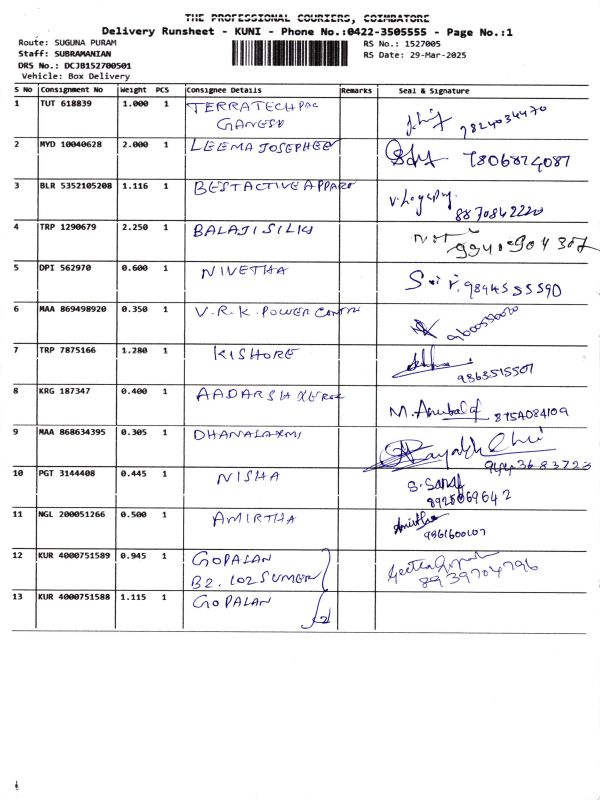 THE PROFESSIONAL COURIERS, COIMBATORE
Delivery Runsheet - KUNI - Phone No.:0422-3505555 - Page No.:1
Route: SUGUNA PURAM RS No.: 1527005
Staff: SUBRAMANIAN RS Date: 29-Mar-2025
DRS No.: DCJB152700501
Vehicle: Box Delivery
S No Consignment No Weight PCS Consignee Details Remarks Seal & Signature
1 TUT 618839 1.000 1 TERRATECH
GANESH 7824034470
2 MYD 10040628 2.000 1 LEEMA JOSEPHEEN
3 BLR 5352105208 1.116 1 BESTACTIVE APPARE 8870842220
4 TRP 1290679 2.250 1 BALAJI SILKS
5 DPI 562970 0.600 1 NIVETHA
6 MAA 869498920 0.350 1 V.R.K. POWER
7 TRP 7875166 1.280 1 KISHORE
9363515501
8 KRG 187347 0.400 1 AADARSH XEROX 8754084109
9 MAA 868634395 0.305 1 DHANALAXMI
9443683723
10 PGT 3144408 0.445 1 NISHA
11 NGL 200051266 0.500 1 AMIRTHA Amirtha
12 KUR 4000751589 0.945 1 GOPALAN
B2. 102 SUMER 8939704796
13 KUR 4000751588 1.115 1 GOPALAN